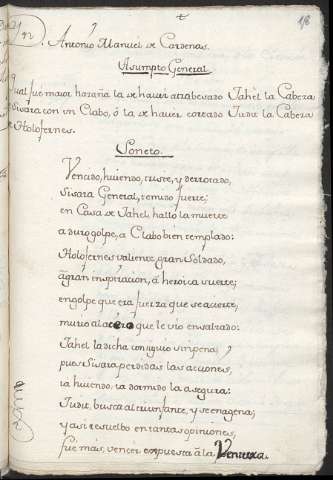 18
42. Antonio Manuel de Cardenas.
Asumpto General
qual fue maior hazaña la de haver atrabesado Jahèl la Cabeza
de Sisara con un Clabo, ó la de haver cortado Judit la Cabeza
de Holofernes.
Soneto.
Vencido, huiendo, triste, y derrotado,
Sisara General, temido fuerte;
en Casa de Jahel, halló la muerte
a duro golpe, a Clabo bien templado:
Holofernes valiente gran Soldado,
a gran inspiracion, á heroica suerte;
en golpe que era fuerza que se acierte,
murió al acero que le vio ensalzado:
Jahel la dicha consiguió sin pena;
pues Sisara perdidas las acciones,
ia huiendo, ia dormido la asegura:
Judit, busca al triunfante, y se enagena;
y asi resuelbo en tantas opiniones,
fue más, vencer opuesta á la Ventura.